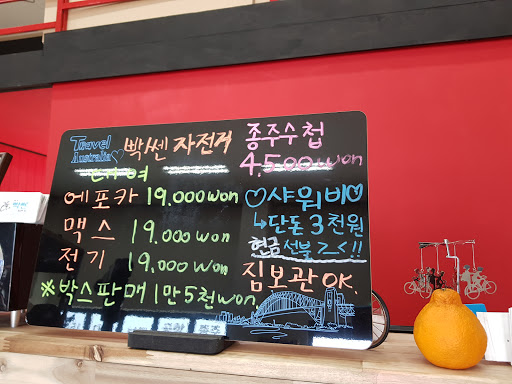 Travel
Australia
빡쎈 자전거
종주수첩
4,500won
대여
에포카 19.000won
맥스 19.000won
전기 19,000won
※박스판매 1만5천won.
♡샤워비♡
↳단돈 3천원
현금 선불 ㄱㄱ!!
짐보관OK.